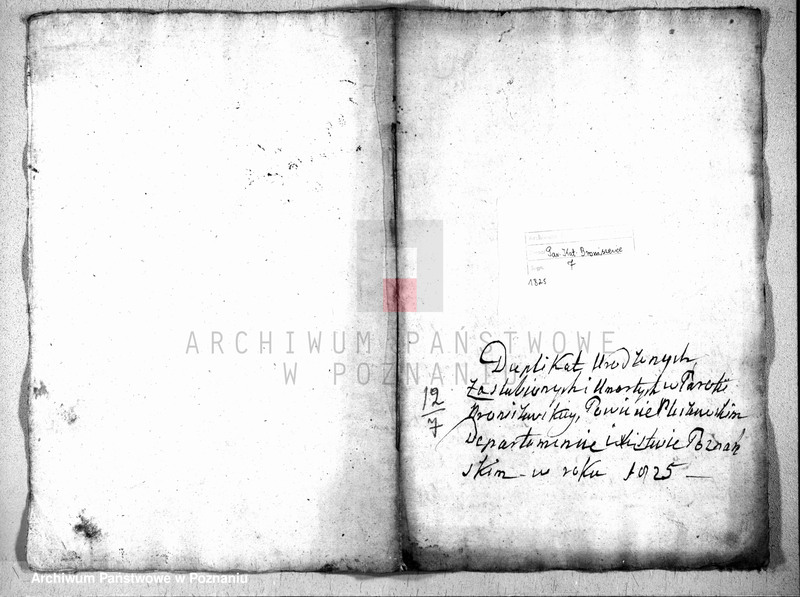 Par. Kat. Broniszewice
7
1825
ARCHIWUM PAŃSTWOWE
W POZNANIU
12
7
Duplikat Urodzonych
Zaslubionych i Umarłych w Parafii
Broniszewskiey, Powiecie Pleszewskim
Departamencie i Xięstwie Poznań
skim w roku 1825 —
Archiwum Państwowe w Poznaniu